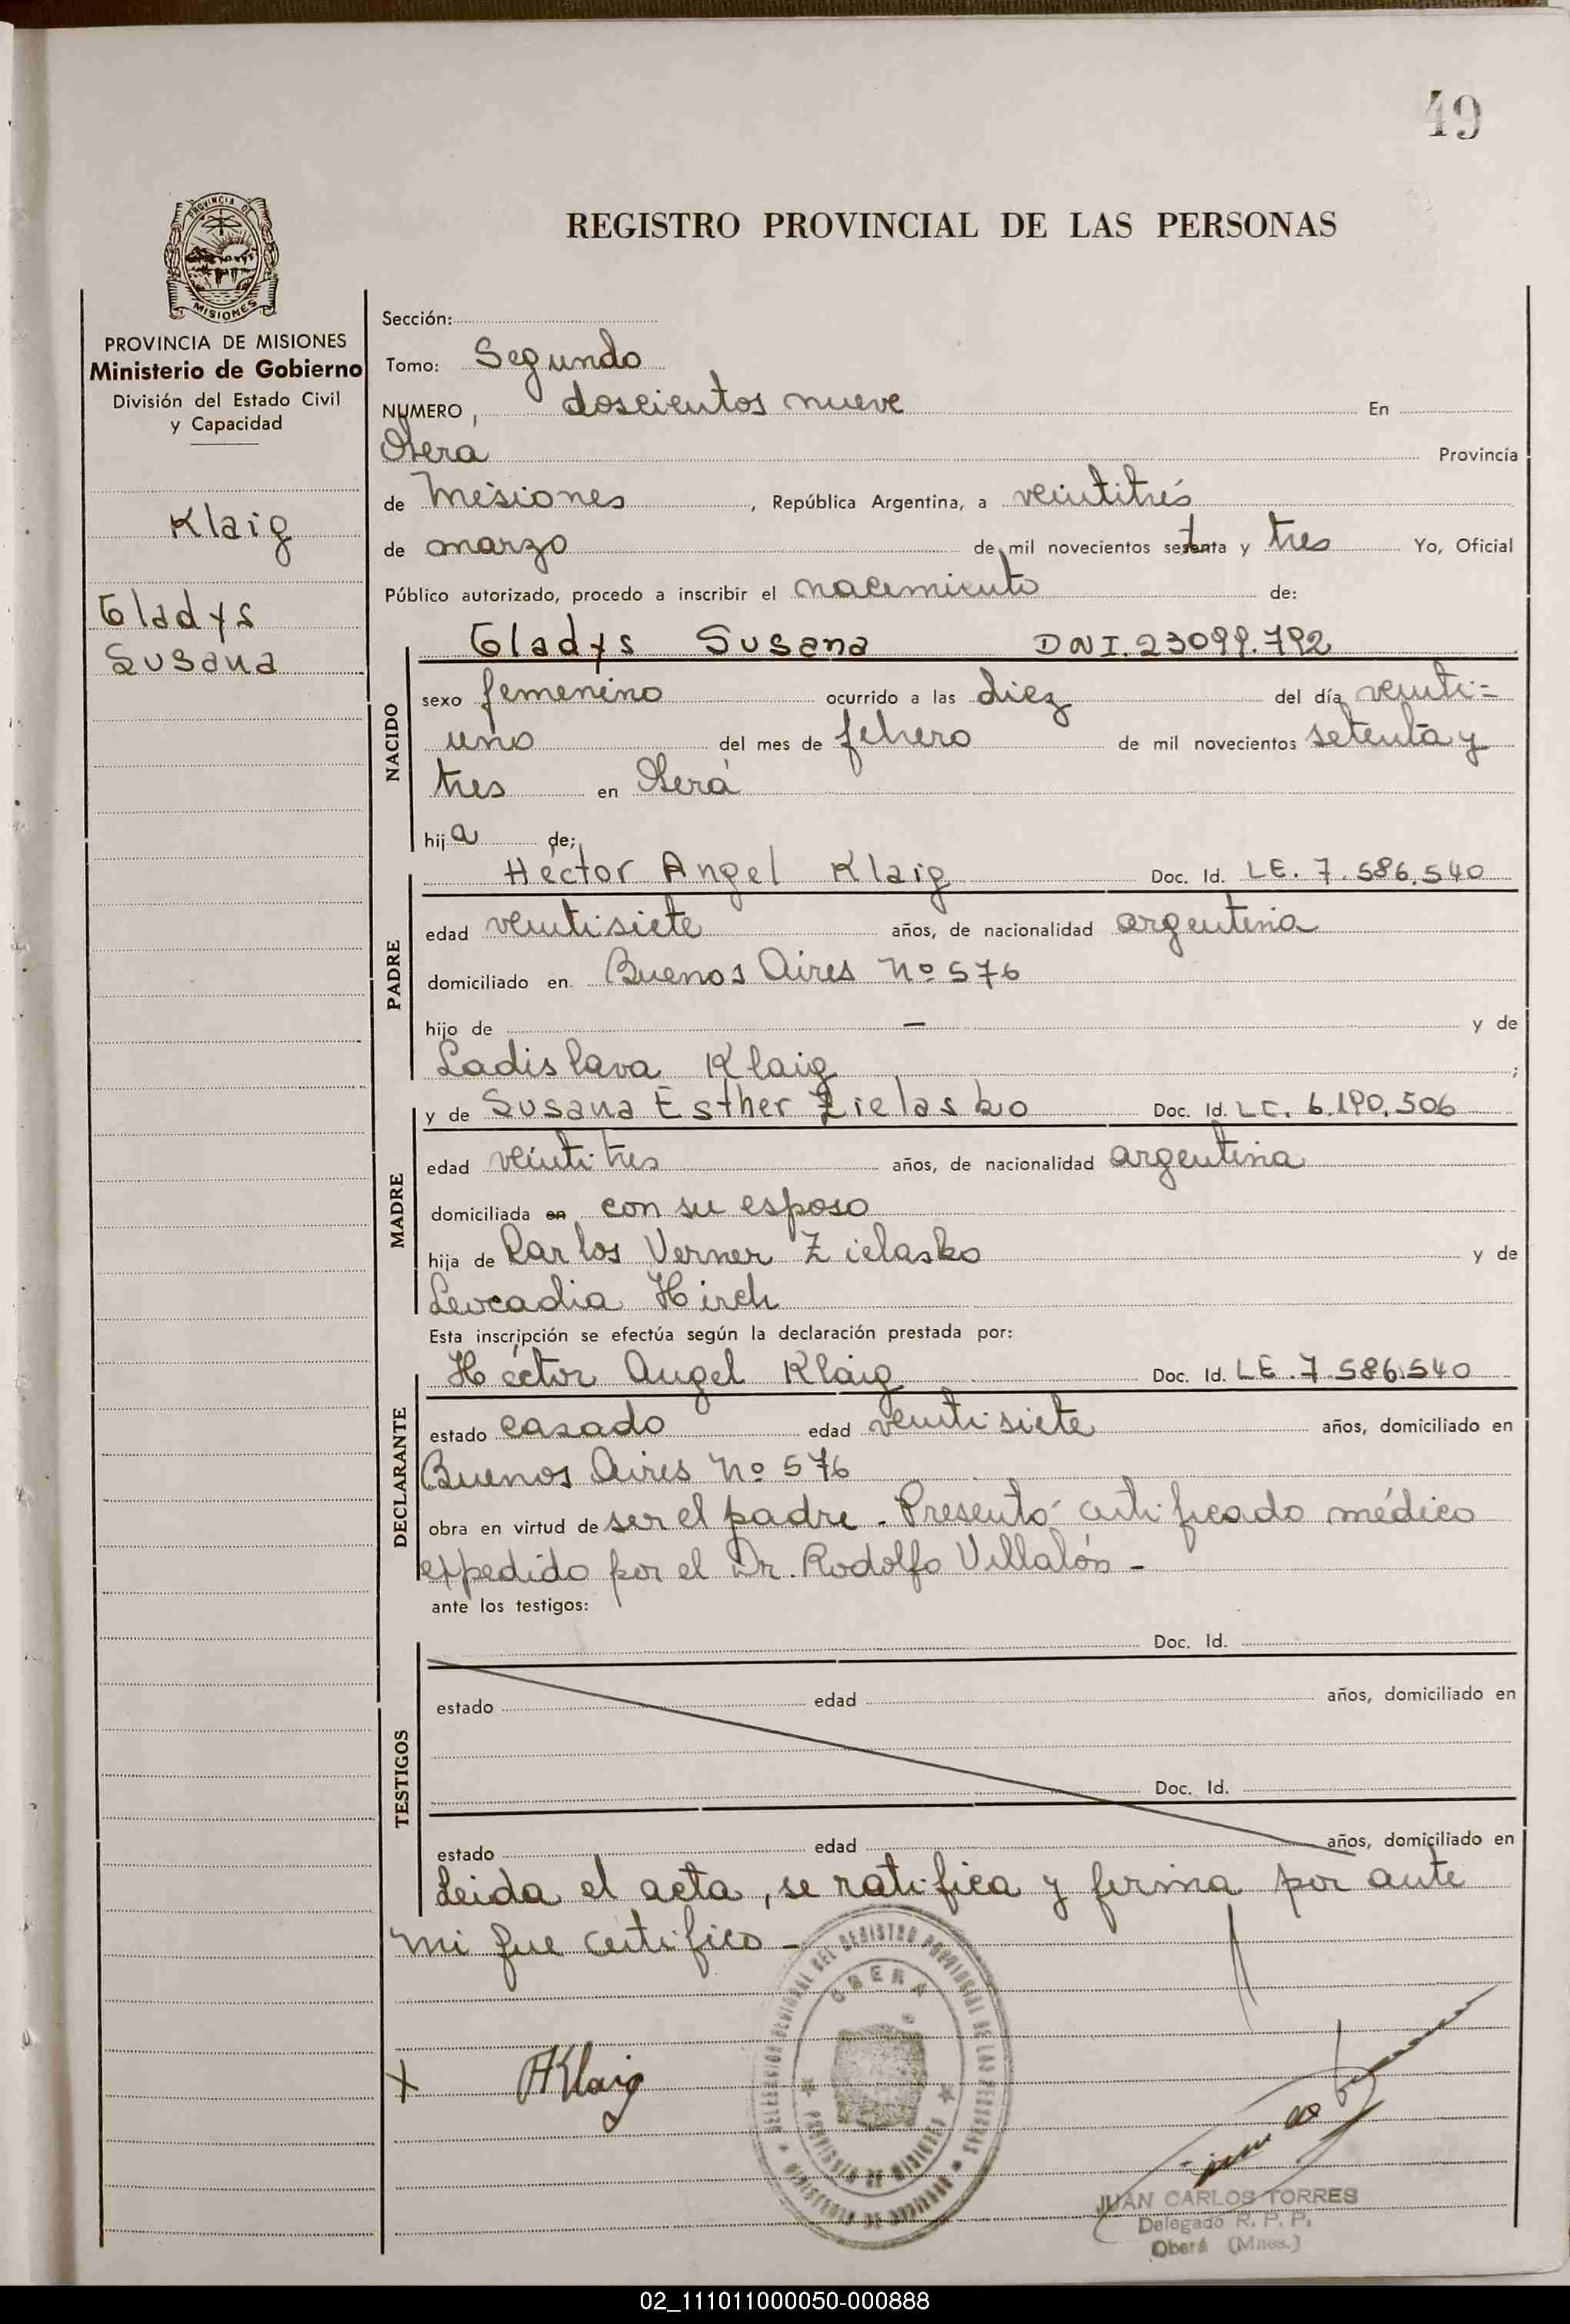 49
PROVINCIA DE
MISIONES
REGISTRO PROVINCIAL DE LAS PERSONAS
PROVINCIA DE MISIONES
Ministerio de Gobierno
División del Estado Civil
y Capacidad
Klaig
Gladys
Susana
Sección:
Tomo: Segundo
NUMERO, doscientos nueve En
Oberá Provincia
de Misiones, República Argentina, a veintitrés
de marzo de mil novecientos setenta y tres Yo, Oficial
Público autorizado, procedo a inscribir el nacimiento de:
NACIDO
Gladys Susana DNI. 23099.792
sexo femenino ocurrido a las diez del día veinti=
uno del mes de febrero de mil novecientos setenta y
tres en Oberá
hija de;
PADRE
Héctor Angel Klaig Doc. Id. LE. 7.586.540
edad veintisiete años, de nacionalidad argentina
domiciliado en Buenos Aires Nº 576
hijo de — y de
Ladislava Klaig;
MADRE
y de Susana Esther Zielasko Doc. Id. LC. 6.190.506
edad veintitres años, de nacionalidad argentina
domiciliada en con su esposo
hija de Carlos Verner Zielasko y de
Leocadia Hirch
Esta inscripción se efectúa según la declaración prestada por:
DECLARANTE
Héctor Angel Klaig Doc. Id. LE. 7.586.540
estado casado edad veintisiete años, domiciliado en
Buenos Aires Nº 576
obra en virtud de ser el padre. Presentó certificado médico
expedido por el Dr. Rodolfo Villalón -
ante los testigos:
TESTIGOS
Doc. Id.
estado edad años, domiciliado en
Doc. Id.
estado edad años, domiciliado en
Leida el acta, se ratifica y firma por ante
mi que certifico -
DELEGACION REGIONAL DEL REGISTRO PROVINCIAL DE LAS PERSONAS
OBERA
PROVINCIA DE MISIONES
x HKlaig
JUAN CARLOS TORRES
Delegado R. P. P.
Oberá (Mnes.)
02_111011000050-000888